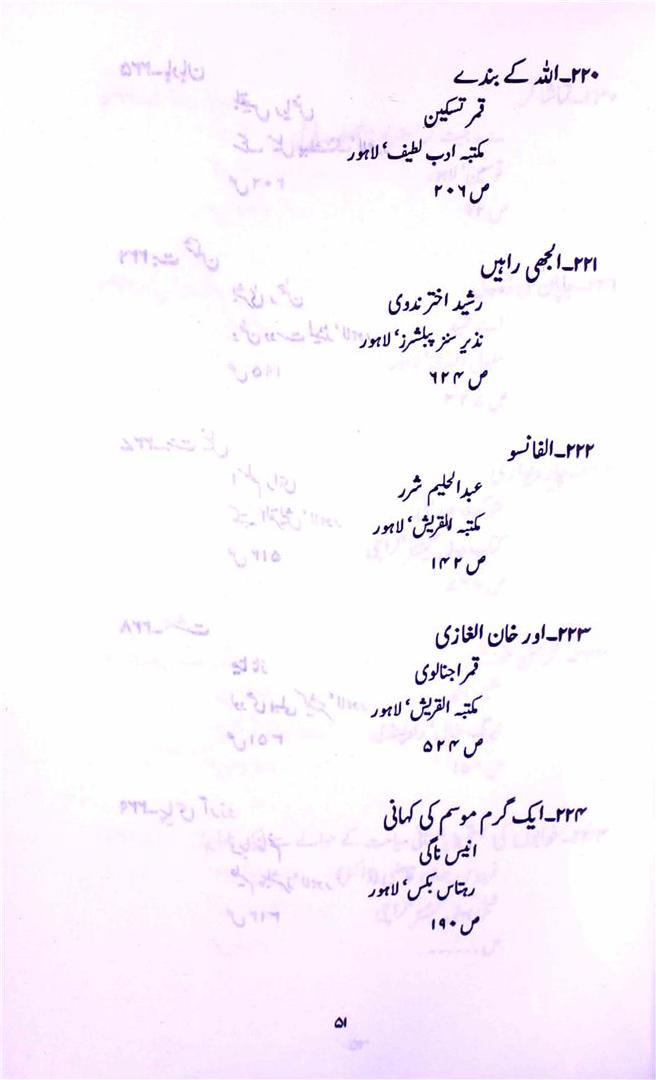 ۲۲۰۔اللہ کے بندے
قمر تسکین
مکتبہ ادب لطیف‘ لاہور
ص ۲۰۶
۲۲۱۔الجھی راہیں
رشید اختر ندوی
نذیر سنز پبلشرز‘ لاہور
ص ۶۲۴
۲۲۲۔الفانسو
عبدالحلیم شرر
مکتبہ القریش‘ لاہور
ص ۱۴۲
۲۲۳۔اور خان الغازی
قمر اجنالوی
مکتبہ القریش‘ لاہور
ص ۵۲۴
۲۲۴۔ایک گرم موسم کی کہانی
انیس ناگی
رہتاس بکس‘ لاہور
ص ۱۹۰
۵۱